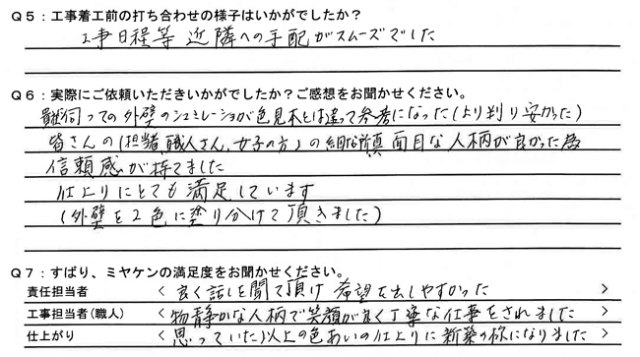 Q5：工事着工前の打ち合わせの様子はいかがでしたか？
工事日程等 近隣への手配がスムーズでした
Q6：実際にご依頼いただきいかがでしたか？ご感想をお聞かせください。
っての外壁のシュミレーションが色見本とは違って参考になった(より判り安かった)
皆さんの(担当者、職人さん、女子の方)の 真面目な人柄が良かった為
信頼感が持てました
仕上りにとても満足しています
(外壁を2色に塗り分けて頂きました)
Q7：ずばり、ミヤケンの満足度をお聞かせください。
責任担当者 〈 良く話しを聞て頂け 希望を出しやすかった 〉
工事担当者(職人) 〈 物静かな人柄で笑顔が良く丁寧な仕事をされました 〉
仕上がり 〈 思っていた以上の色あいの仕上りに新築の様になりました 〉